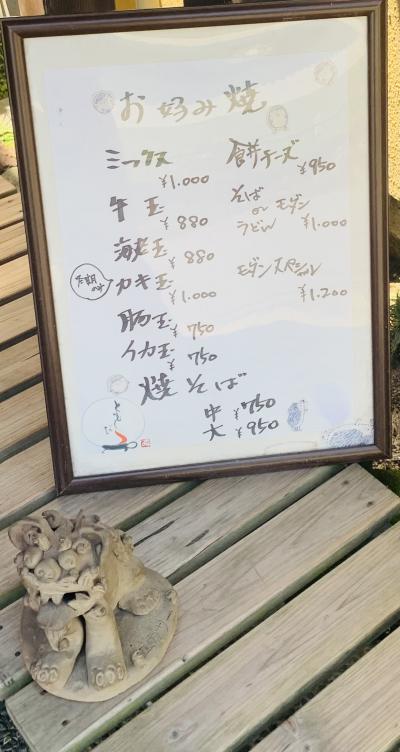 お好み焼
ミックス
¥1.000
牛玉
¥880
海老玉
¥880
冬期のみ
カキ玉
¥1.000
豚玉
¥750
イカ玉
¥750
餅チーズ
¥950
そば
or モダン
うどん
¥1.000
モダンスペシャル
¥1.200
焼そば
中 ¥750
大 ¥950